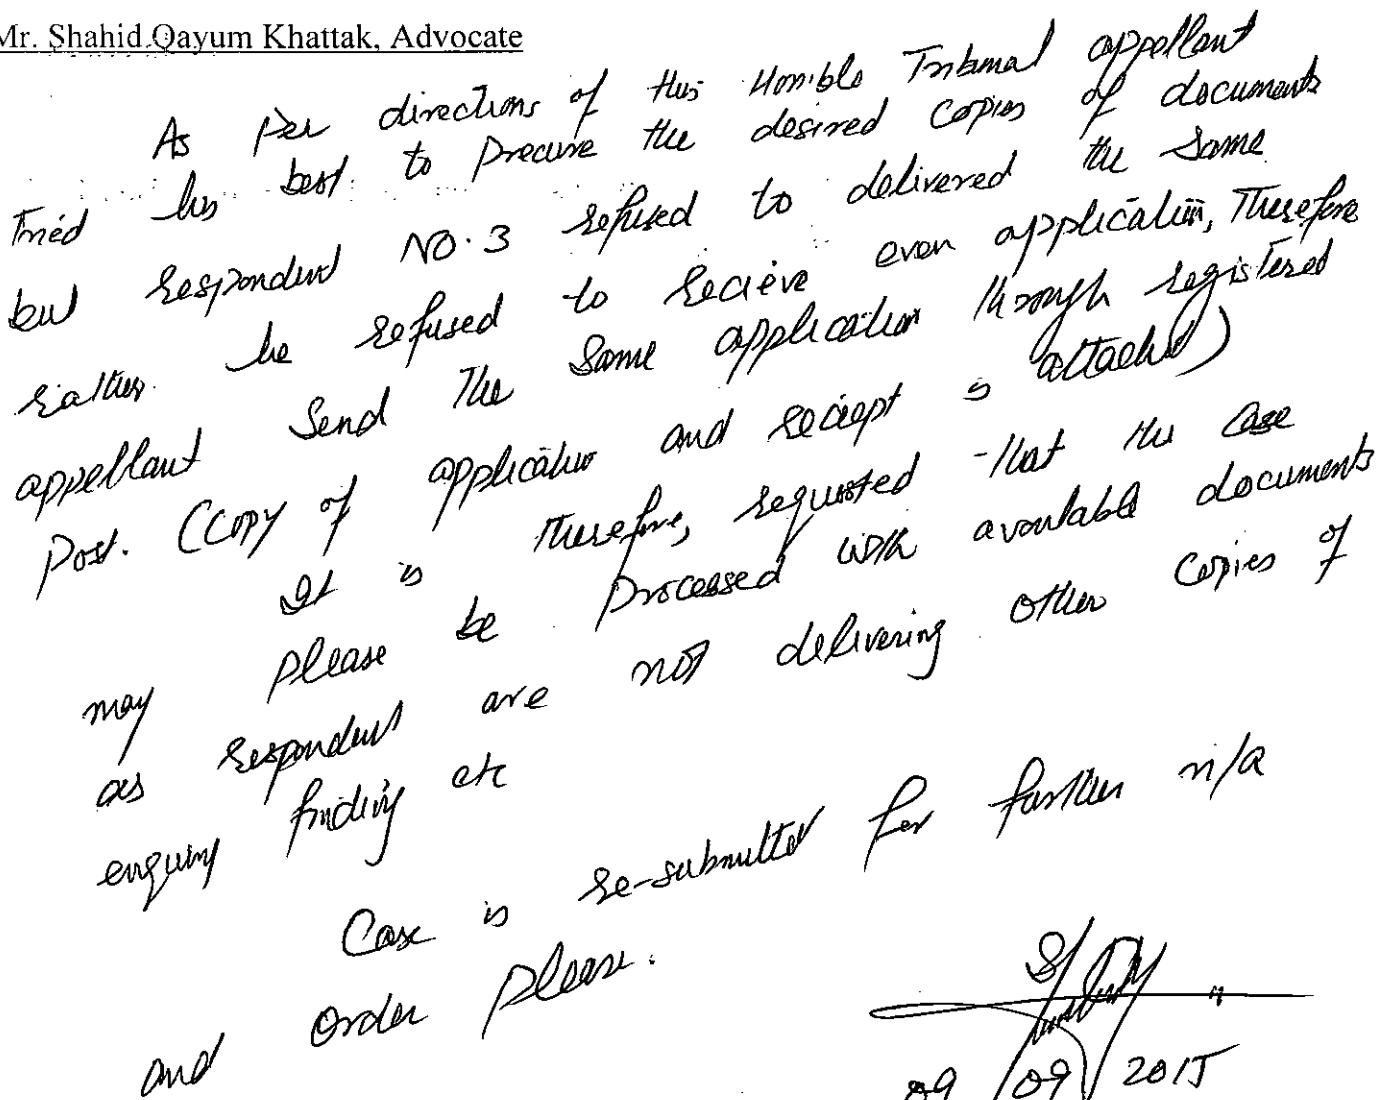 Mr. Shahid Qayum Khattak, Advocate
As per directions of this Hon'ble Tribunal appellant
Tried his best to procure the desired copies of documents
but respondent NO. 3 refused to delivered the same
rather he refused to recieve even application, Therefore
appellant Send The Same application through registered
Post. (Copy of application and reciept is attached)
It is therefore, requested that the case
may please be processed with available documents
as respondent are not delivering other copies of
enquiry finding etc
Case is re-submitted for further n/a
and order please.
09/09/2015